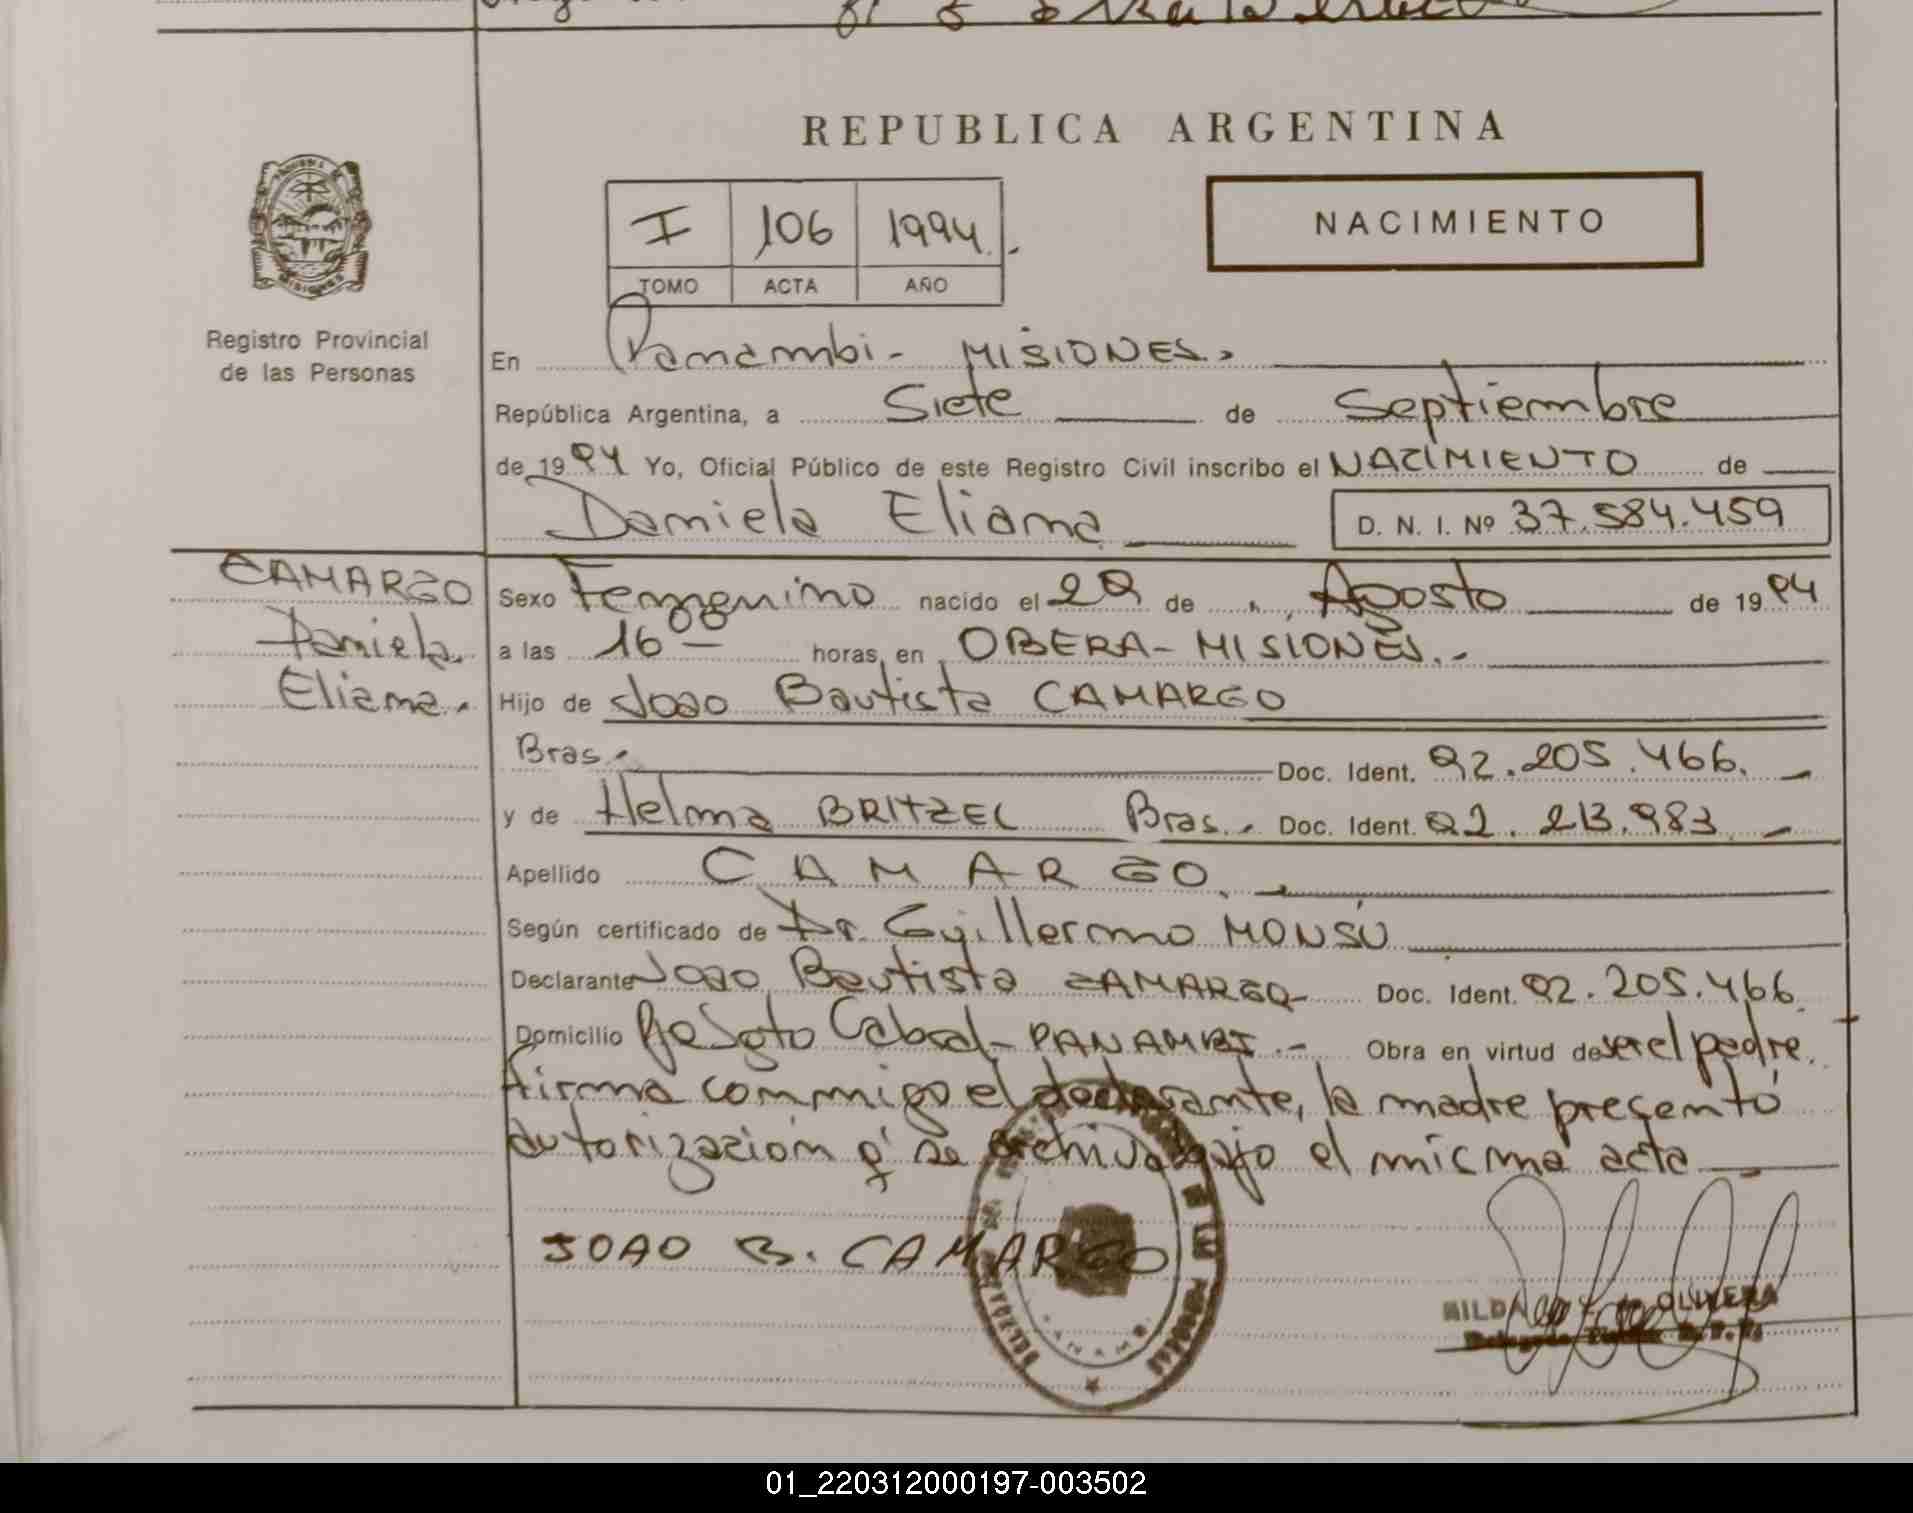 REPUBLICA ARGENTINA
I 106 1994.
TOMO ACTA AÑO
NACIMIENTO
MISIONES
Registro Provincial
de las Personas
En Panambi - MISIONES.
República Argentina, a Siete de Septiembre
de 1994 Yo, Oficial Público de este Registro Civil inscribo el NACIMIENTO de
Daniela Eliana D. N. I. Nº 37.584.459
CAMARGO
Daniela
Eliana.
Sexo Femenino nacido el 29 de Agosto de 1994
a las 16 00 horas, en OBERA - MISIONES.-
Hijo de Joao Bautista CAMARGO
Bras.- Doc. Ident. 92.205.466.-
y de Helma BRITZEL Bras.- Doc. Ident. 92.213.983.-
Apellido CAMARGO.-
Según certificado de Dr. Guillermo MONSU
Declarante Joao Bautista CAMARGO- Doc. Ident. 92.205.466.
Domicilio Cabral - PANAMBI.- Obra en virtud de ser el padre.
firma conmigo el declarante, la madre presentó
autorización q' se archiva bajo el misma acta
JOAO B. CAMARGO
OLIVERA
01_220312000197-003502